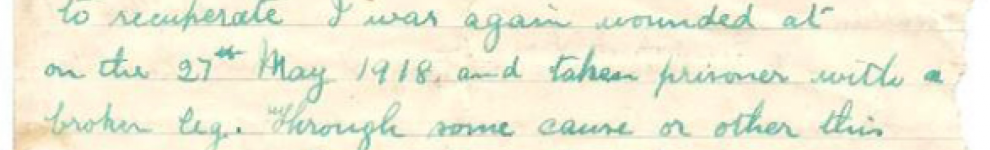 to recuperate I was again wounded at
on the 27th May 1918, and taken prisoner with a
broken leg. Through some cause or other this